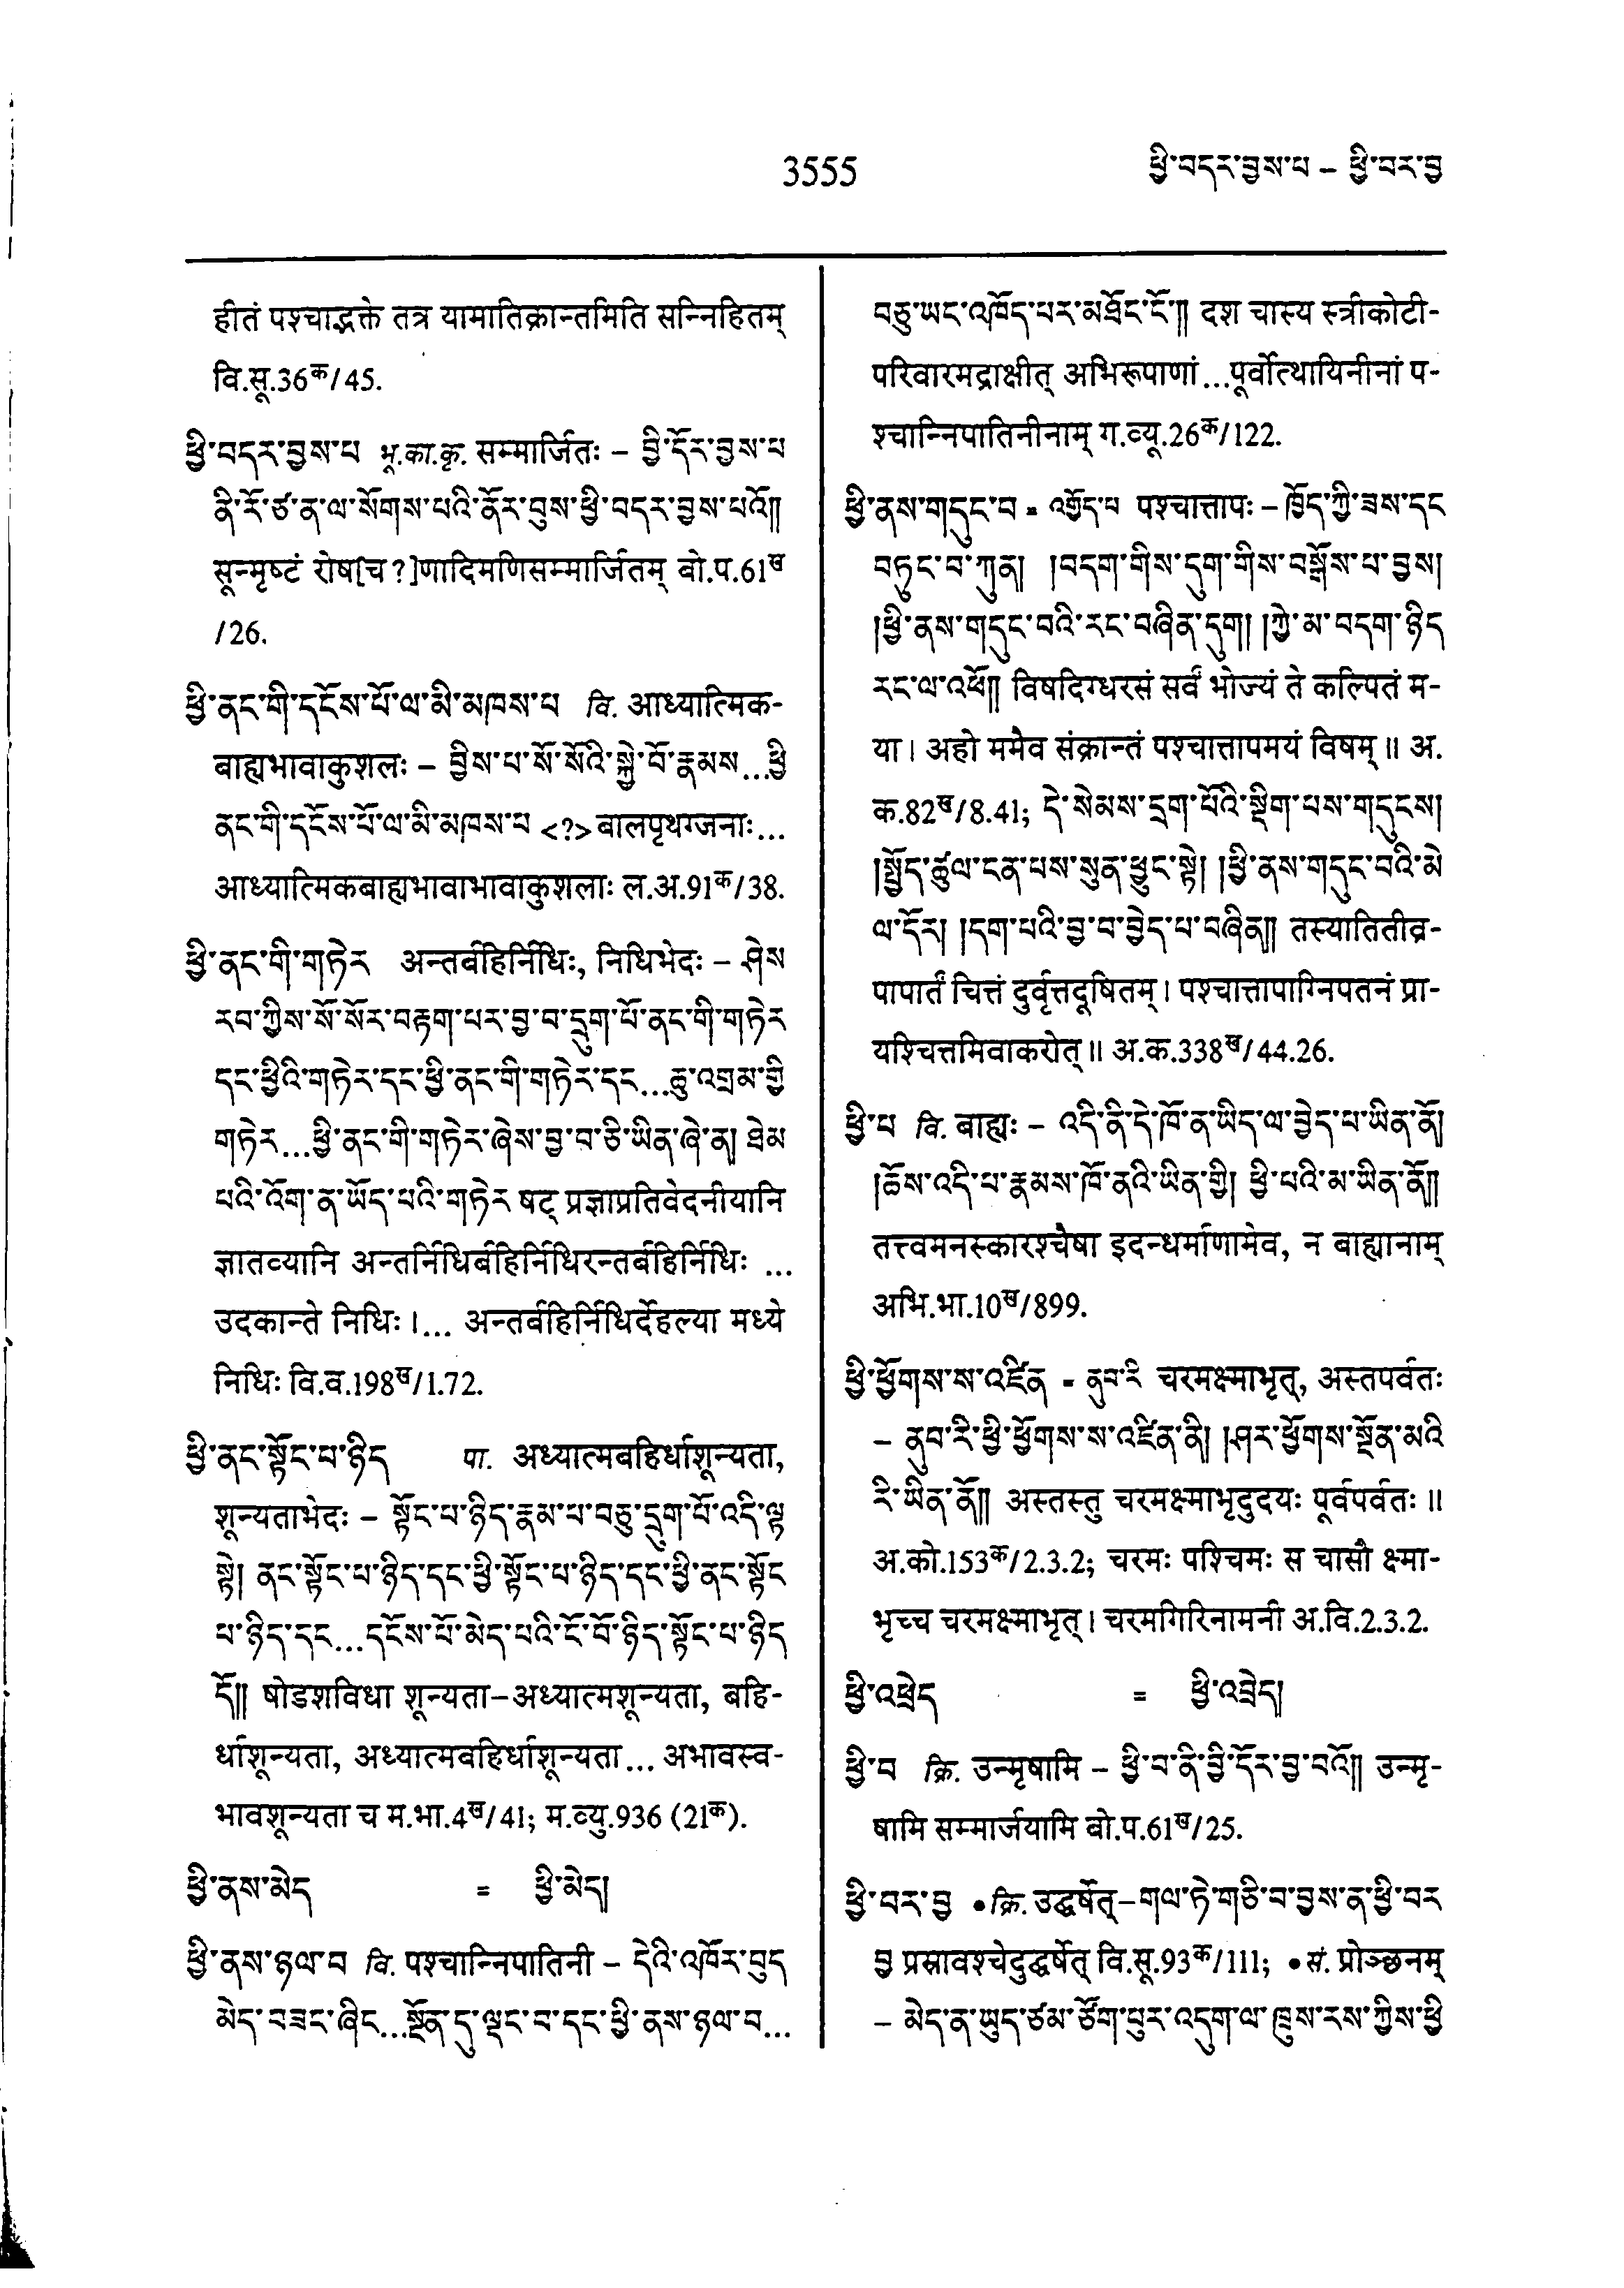 3555
ཕྱི་བདར་བྱས་པ – ཕྱི་བར་བྱ
हीतं पश्चाद्भक्ते तत्र यामातिक्रान्तमिति सन्निहितम्
वि.सू.36क/45.
ཕྱི་བདར་བྱས་པ भू.का.कृ. सम्मार्जितः – བྱི་དོར་བྱས་པ
ནི་རོ་ཙ་ན་ལ་སོགས་པའི་ནོར་བུས་ཕྱི་བདར་བྱས་པའོ།།
सून्मृष्टं रोष[च ?]णादिमणिसम्मार्जितम् बो.प.61ख
/26.
ཕྱི་ནང་གི་དངོས་པོ་ལ་མི་མཁས་པ वि. आध्यात्मिक-
बाह्यभावाकुशलः – བྱིས་པ་སོ་སོའི་སྐྱེ་བོ་རྣམས...ཕྱི
ནང་གི་དངོས་པོ་ལ་མི་མཁས་པ <?> बालपृथग्जनाः...
आध्यात्मिकबाह्यभावाभावाकुशलाः ल.अ.91क/38.
ཕྱི་ནང་གི་གཏེར अन्तर्बहिर्निधिः, निधिभेदः – ཤེས
རབ་ཀྱིས་སོ་སོར་བརྟག་པར་བྱ་བ་དྲུག་པོ་ནང་གི་གཏེར
དང་ཕྱིའི་གཏེར་དང་ཕྱི་ནང་གི་གཏེར་དང...ཆུ་འགྲམ་གྱི
གཏེར...ཕྱི་ནང་གི་གཏེར་ཞེས་བྱ་བ་ཅི་ཡིན་ཞེ་ན། ཐེམ
པའི་འོག་ན་ཡོད་པའི་གཏེར षट् प्रज्ञाप्रतिवेदनीयानि
ज्ञातव्यानि अन्तर्निधिर्बहिर्निधिरन्तर्बहिर्निधिः ...
उदकान्ते निधिः।... अन्तर्बहिर्निधिर्देहल्या मध्ये
निधिः वि.व.198ख/1.72.
ཕྱི་ནང་སྟོང་པ་ཉིད पा. अध्यात्मबहिर्धाशून्यता,
शून्यताभेदः – སྟོང་པ་ཉིད་རྣམ་པ་བཅུ་དྲུག་པོ་འདི་ལྟ
སྟེ། ནང་སྟོང་པ་ཉིད་དང་ཕྱི་སྟོང་པ་ཉིད་དང་ཕྱི་ནང་སྟོང
པ་ཉིད་དང...དངོས་པོ་མེད་པའི་ངོ་བོ་ཉིད་སྟོང་པ་ཉིད
དོ།། षोडशविधा शून्यता–अध्यात्मशून्यता, बहि-
र्धाशून्यता, अध्यात्मबहिर्धाशून्यता... अभावस्व-
भावशून्यता च म.भा.4ख/41; म.व्यु.936 (21क).
ཕྱི་ནས་མེད = ཕྱི་མེད།
ཕྱི་ནས་ཉལ་བ वि. पश्चान्निपातिनी – དེའི་འཁོར་བུད
མེད་བཟང་ཞིང...སྔོན་དུ་ལྡང་བ་དང་ཕྱི་ནས་ཉལ་བ...
བཅུ་ཡང་འཁོད་པར་མཐོང་ངོ་།། दश चास्य स्त्रीकोटी-
परिवारमद्राक्षीत् अभिरूपाणां...पूर्वोत्थायिनीनां प-
श्चान्निपातिनीनाम् ग.व्यू.26क/122.
ཕྱི་ནས་གདུང་བ = འགྱོད་པ पश्चात्तापः – ཁྱོད་ཀྱི་ཟས་དང
བཏུང་བ་ཀུན། །བདག་གིས་དུག་གིས་བསྒོས་པ་བྱས།
།ཕྱི་ནས་གདུང་བའི་རང་བཞིན་དུག། །ཀྱེ་མ་བདག་ཉིད
རང་ལ་འཕོ།། विषदिग्धरसं सर्वं भोज्यं ते कल्पितं म-
या। अहो ममैव संक्रान्तं पश्चात्तापमयं विषम्॥ अ.
क.82ख/8.41; དེ་སེམས་དྲག་པོའི་སྡིག་པས་གདུངས།
།སྤྱོད་ཚུལ་ངན་པས་སུན་ཕྱུང་སྟེ། །ཕྱི་ནས་གདུང་བའི་མེ
ལ་དོར། །དག་པའི་བྱ་བ་བྱེད་པ་བཞིན།། तस्यातितीव्र-
पापार्तं चित्तं दुर्वृत्तदूषितम्। पश्चात्तापाग्निपतनं प्रा-
यश्चित्तमिवाकरोत्॥ अ.क.338ख/44.26.
ཕྱི་པ वि. बाह्यः – འདི་ནི་དེ་ཁོ་ན་ཡིད་ལ་བྱེད་པ་ཡིན་ནོ།
།ཆོས་འདི་པ་རྣམས་ཁོ་ནའི་ཡིན་གྱི། ཕྱི་པའི་མ་ཡིན་ནོ།།
तत्त्वमनस्कारश्चैषा इदन्धर्माणामेव, न बाह्यानाम्
अभि.भा.10ख/899.
ཕྱི་ཕྱོགས་ས་འཛིན = ནུབ་རི चरमक्ष्माभृत्, अस्तपर्वतः
– ནུབ་རི་ཕྱི་ཕྱོགས་ས་འཛིན་ནི། །ཤར་ཕྱོགས་སྔོན་མའི
རི་ཡིན་ནོ།། अस्तस्तु चरमक्ष्माभृदुदयः पूर्वपर्वतः॥
अ.को.153क/2.3.2; चरमः पश्चिमः स चासौ क्ष्मा-
भृच्च चरमक्ष्माभृत्। चरमगिरिनामनी अ.वि.2.3.2.
ཕྱི་འཕྲེད = ཕྱི་འབྲེད།
ཕྱི་བ क्रि. उन्मृषामि – ཕྱི་བ་ནི་བྱི་དོར་བྱ་བའོ།། उन्मृ-
षामि सम्मार्जयामि बो.प.61ख/25.
ཕྱི་བར་བྱ •क्रि. उद्धर्षेत्–གལ་ཏེ་གཅི་བ་བྱས་ན་ཕྱི་བར
བྱ प्रस्रावश्चेदुद्धर्षेत् वि.सू.93क/111; •सं. प्रोञ्छनम्
– མེད་ན་ཡུད་ཙམ་ཙོག་པུར་འདུག་ལ་ཁྲུས་རས་ཀྱིས་ཕྱི